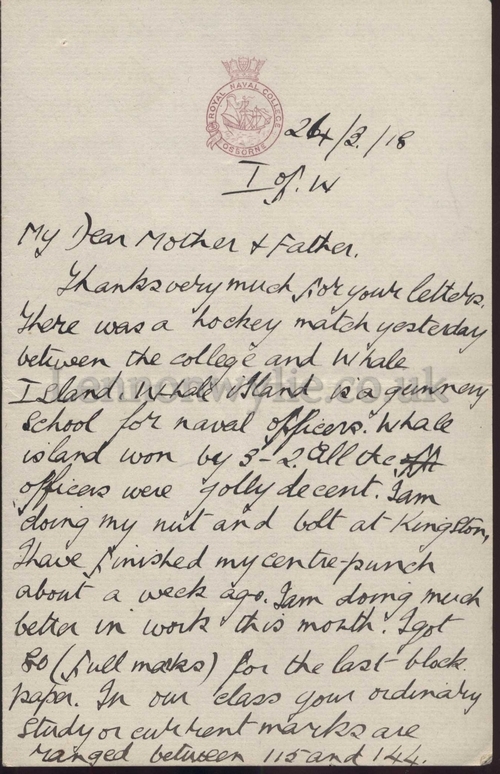 ROYAL NAVAL COLLEGE
OSBORNE
24/2/18
I of. W
My Dear Mother & Father.
Thanks very much for your letters.
There was a hockey match yesterday
between the college and Whale
Island. Whale Island is a gunnery
School for naval officers. Whale
island won by 3-2. All the
officers were jolly decent. I am
doing my nut and bolt at Kingston,
I have finished my centre-punch
about a week ago. I am doing much
better in work this month. I got
80 (full marks) for the last block
paper. In our class your ordinary
study or current marks are
ranged between 115 and 144.
Lennonwylie.co.uk